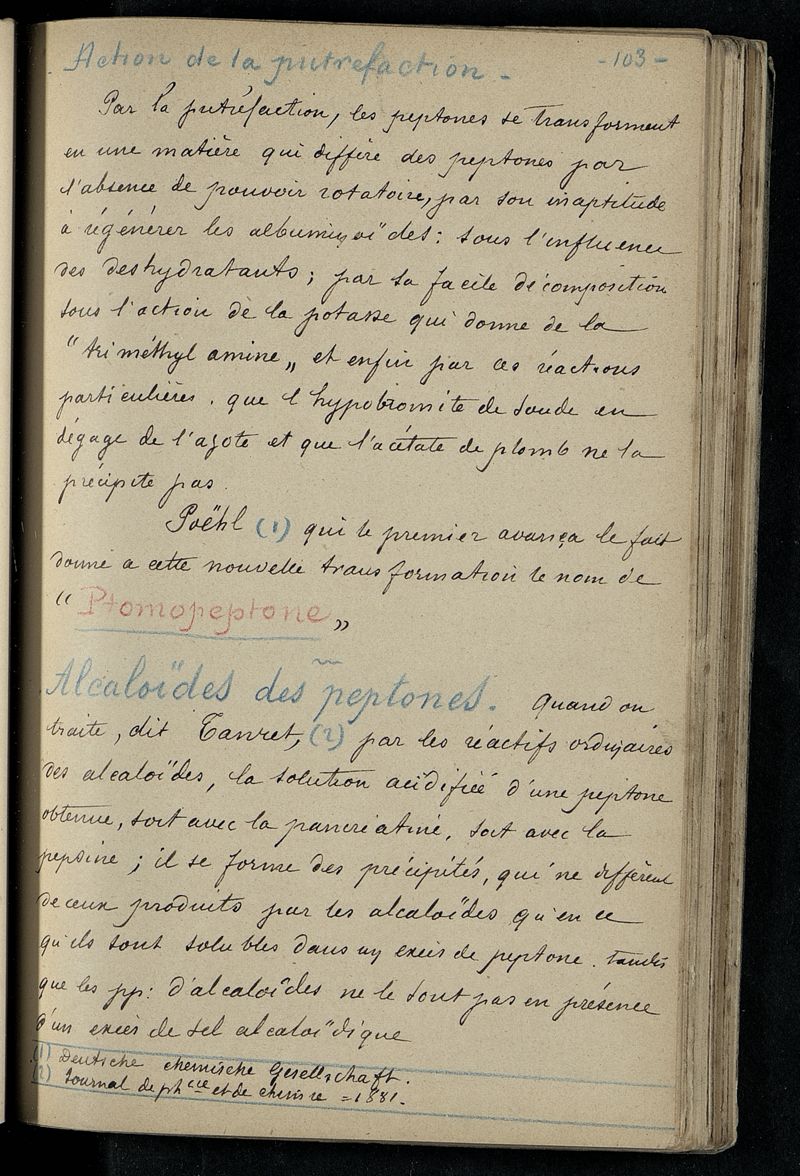 Action de la putrefaction -
- 103 -
Par la putréfaction, les peptones se transforment
en une matière qui diffère des peptones par
l'absence de pouvoir rotatoire, par son inaptitude
à régénérer les albuminoïdes: sous l'influence
des deshydratants; par sa facile décomposition
sous l'action de la potasse qui donne de la
"triméthyl amine" et enfin par ces réactions
particulières. que l'hypobromite de soude en
dégage de l'azote et que l'acétate de plomb ne la
précipite pas.
Poëhl (1) qui le premier avança le fait
donne a cette nouvelle transformation le nom de
"Ptomopeptone"
Alcaloïdes des peptones. Quand on
traite, dit Tanret, (2) par les réactifs ordinaires
des alcaloïdes, la solution acidifiée d'une peptone
obtenue, soit avec la pancréatine, soit avec la
pepsine; il se forme des précipités, qui ne diffèrent
de ceux produits par les alcaloïdes qu'en ce
qu'ils sont solubles dans un excès de peptone. tandis
que les pp: d'alcaloïdes ne le sont pas en présence
d'un excès de sel alcaloïdique
(1) Deutsche chemische Gesellschaft.
(2) Journal de phcie et de chimie = 1881.